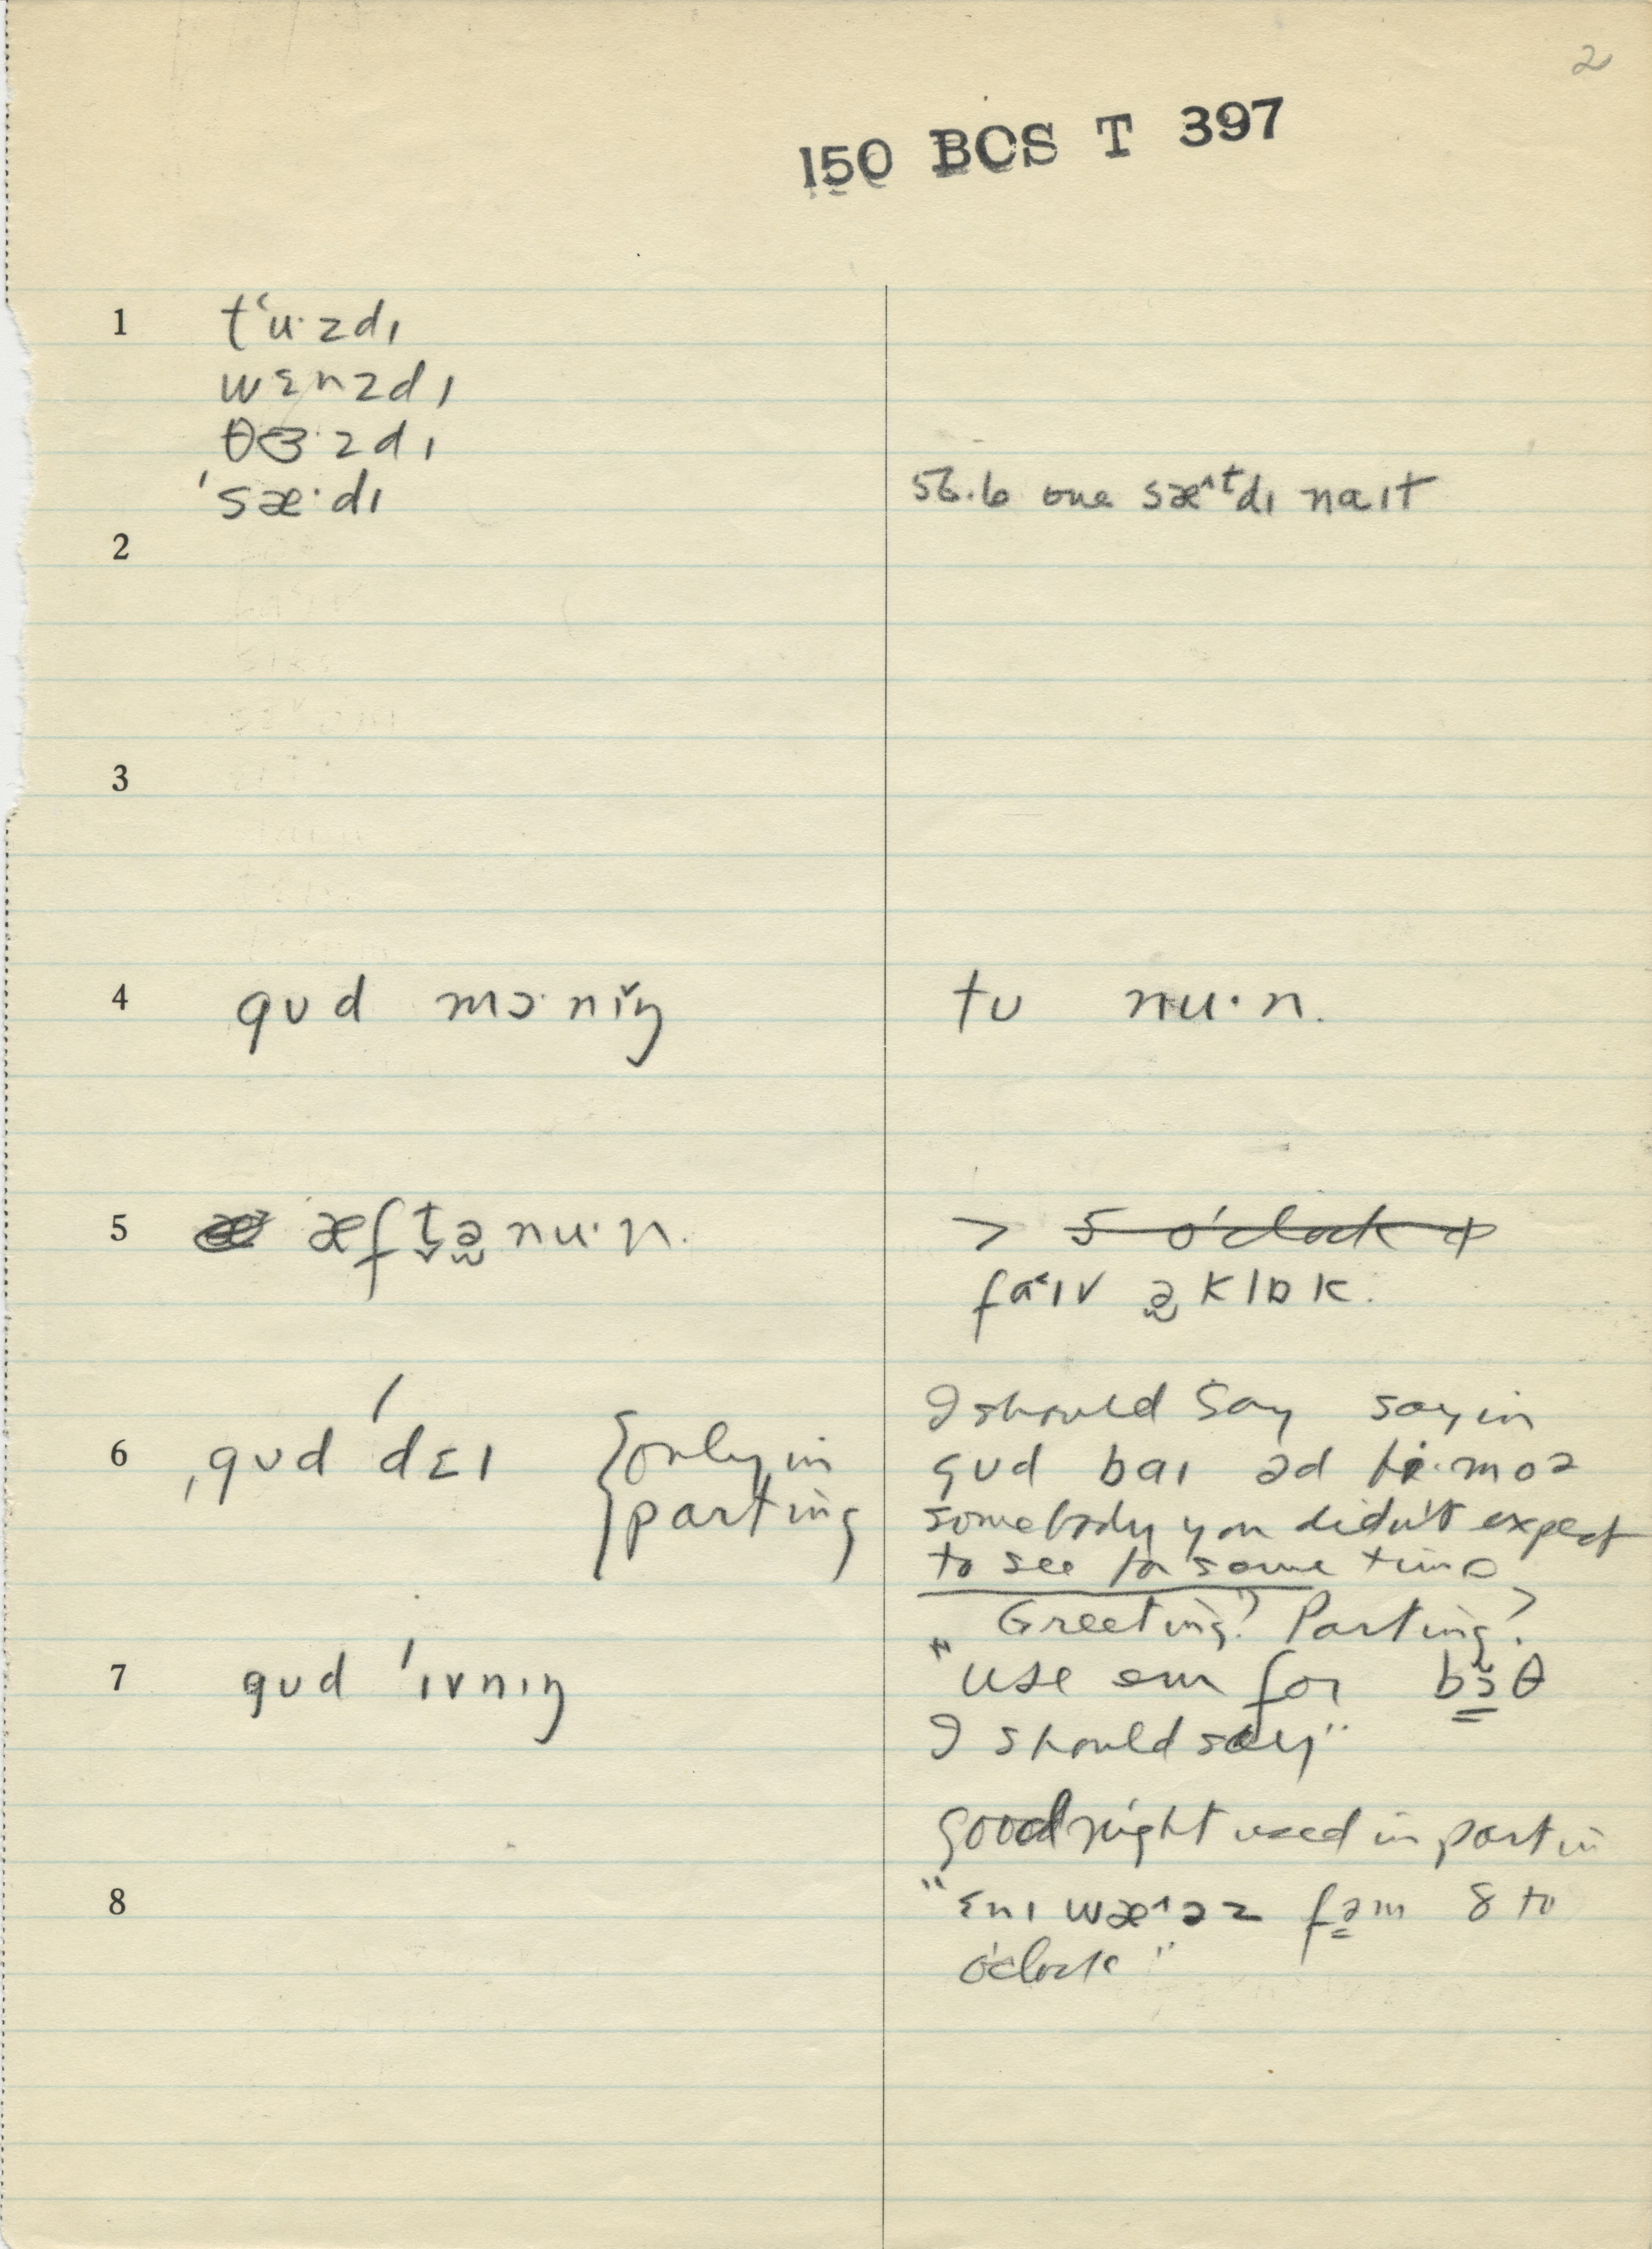 2
150 BCS T 397
1 tʻu·zdɪ
wɛnzdɪ
θɜ·zdɪ
ˈsæ·dɪ
one sæ^ᵗdɪ naɪt
2
3
4 gʊd mɔ·nɪ̌ŋ tʊ nu·n.
5 æft̬ə̬nu·n. > 5 o'clock
fa˂ɪv ə̬klɒk.
6 ˌgʊd ˈdɛɪ {only in
parting
I should say sayin
gʊd baɪ əd
somebody you didn't expect
to see for some time
Greeting? Parting?
7 gʊd ˈɪvnɪŋ
"use em for bɔ̃θ
I should say"
good night used in partin
8
"ɛnɪ wæ^əz fəm 8 to
o'clock"